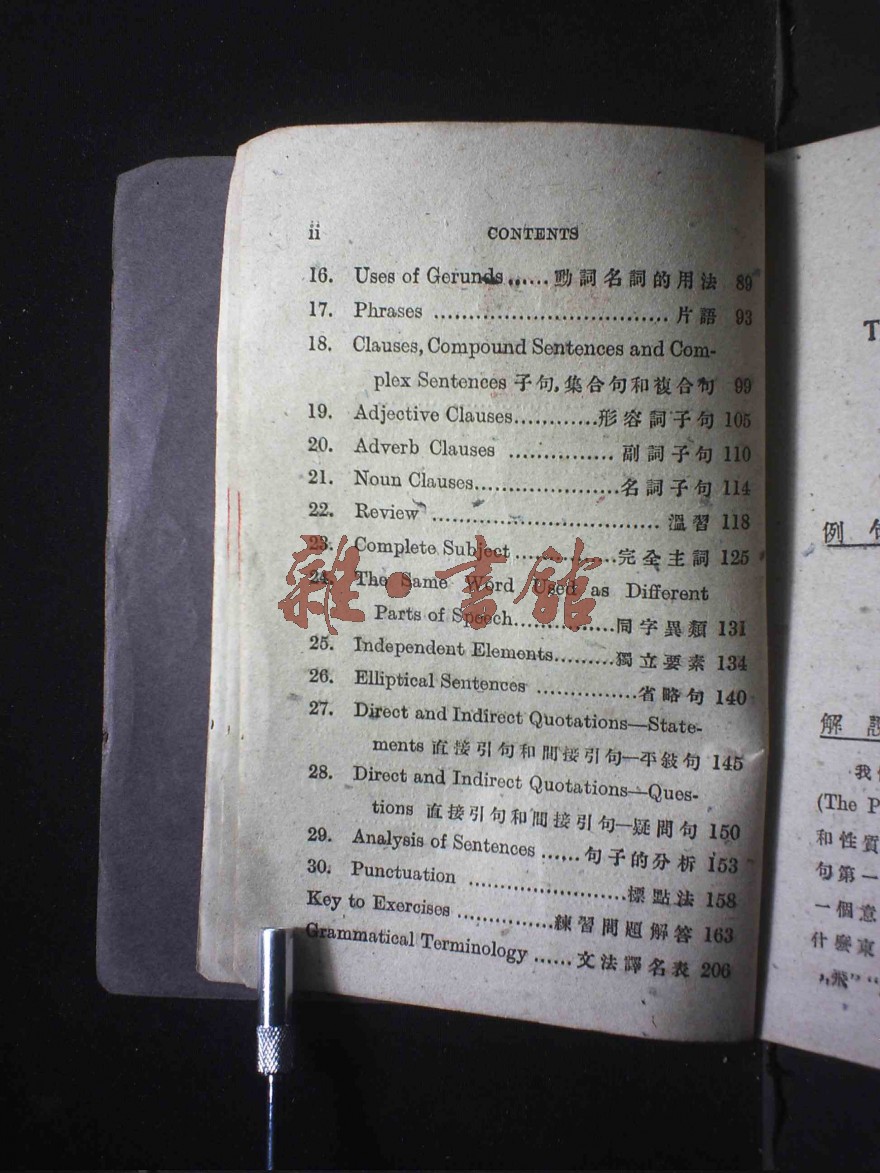 ii CONTENTS
16. Uses of Gerunds......動詞名詞的用法 89
17. Phrases ................................. 片語 93
18. Clauses, Compound Sentences and Com-
plex Sentences 子句,集合句和複合句 99
19. Adjective Clauses............形容詞子句 105
20. Adverb Clauses ............... 副詞子句 110
21. Noun Clauses.....................名詞子句 114
22. Review ................................. 溫習 118
23. Complete Subject ...............完全主詞 125
24. The Same Word Used as Different
Parts of Speech...............同字異類 131
25. Independent Elements.........獨立要素 134
26. Elliptical Sentences ..............省略句 140
27. Direct and Indirect Quotations—State-
ments 直接引句和間接引句—平敍句 145
28. Direct and Indirect Quotations—Ques-
tions 直接引句和間接引句—疑問句 150
29. Analysis of Sentences ......句子的分析 153
30. Punctuation .......................標點法 158
Key to Exercises ..............練習問題解答 163
Grammatical Terminology ......文法譯名表 206
雜·書館
T
例
解
我
(The P
和性質
句第一
一個意
什麼東
"飛"